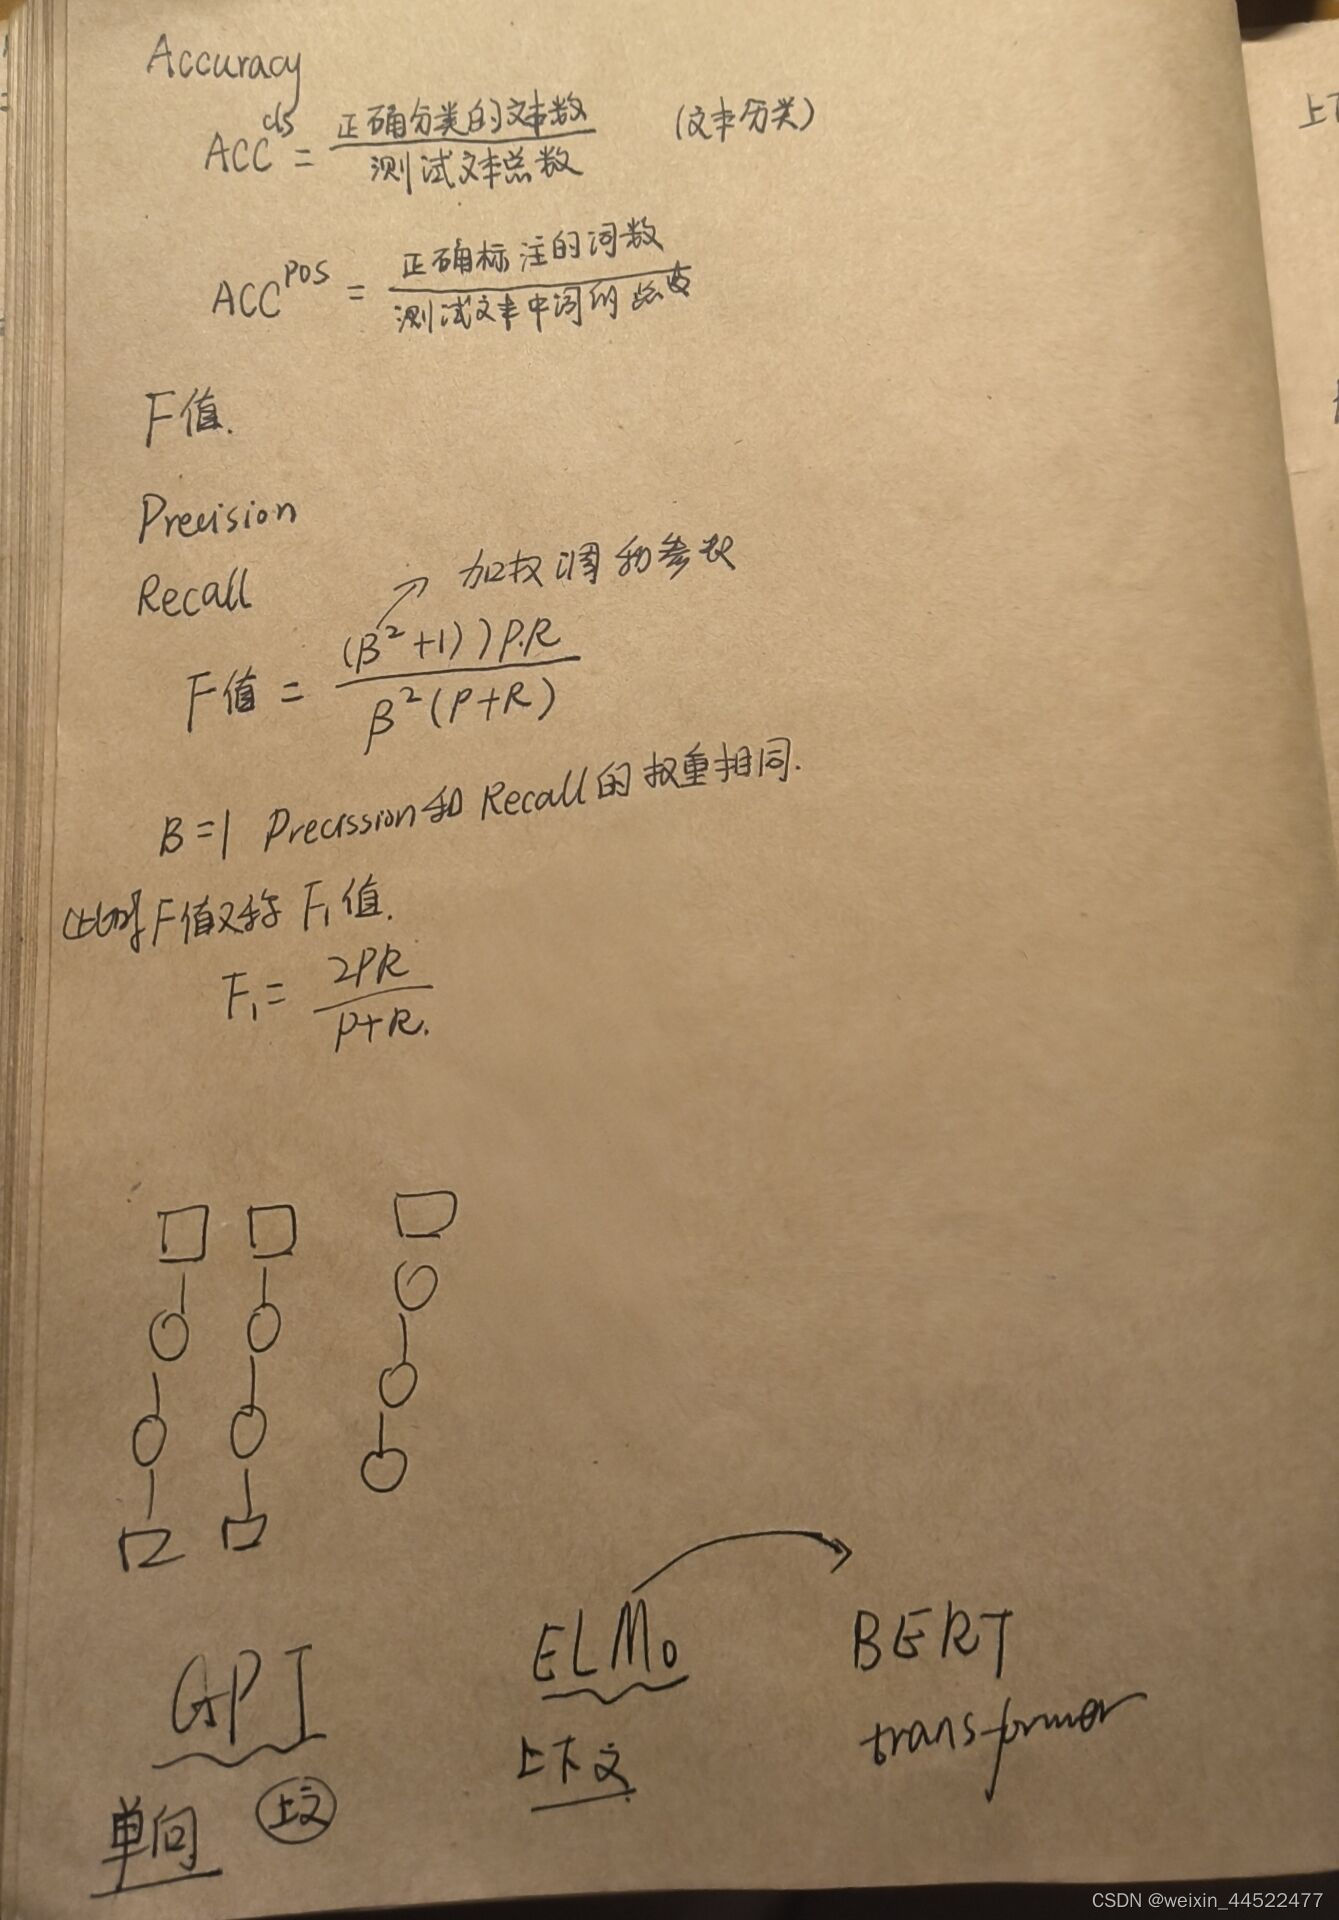 Accuracy
ACC^cls = 正确分类的文本数 / 测试文本总数 (文本分类)
ACC^POS = 正确标注的词数 / 测试文本中词的总数
F值.
Precision
Recall
加权调和参数
F值 = (β²+1))P.R / β²(P+R)
B=1 Precission和Recall的权重相同.
此时F值又称 F₁值.
F₁= 2PR / P+R.
GPT ELMo BERT
单向 上文 上下文 transformer
上下
CSDN @weixin_44522477